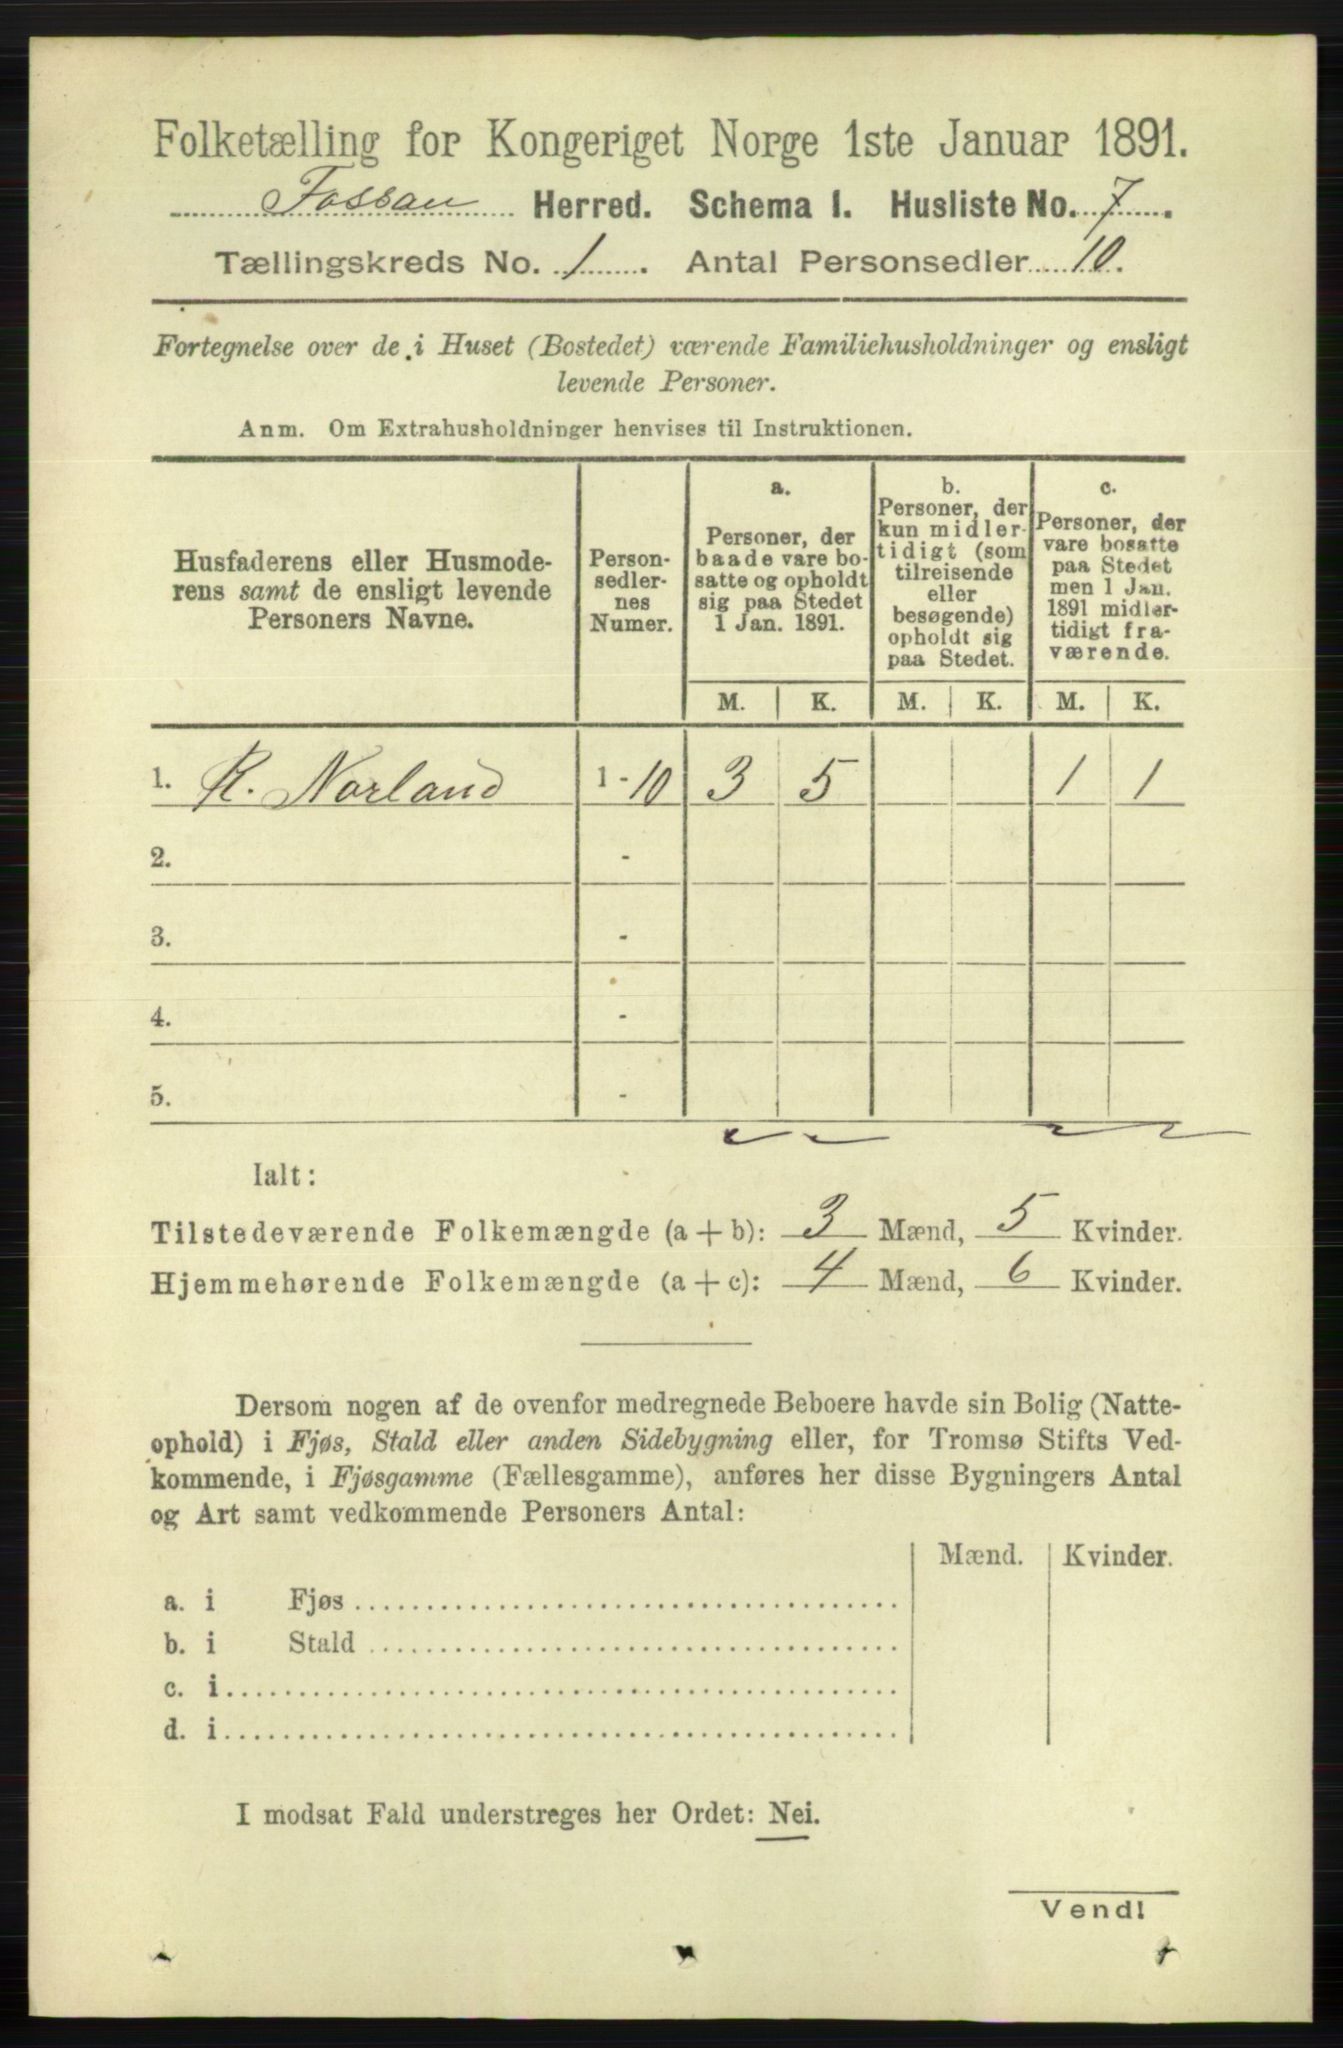 Folketælling for Kongeriget Norge 1ste Januar 1891.
Fossan Herred. Schema I. Husliste No. 7.
Tællingskreds No. 1. Antal Personsedler 10.
Fortegnelse over de i Huset (Bostedet) værende Familiehusholdninger og ensligt
levende Personer.
Anm. Om Extrahusholdninger henvises til Instruktionen.
Husfaderens eller Husmode-
rens samt de ensligt levende
Personers Navne.
Person-
sedler-
nes
Numer.
a.
Personer, der
baade vare bo-
satte og opholdt
sig paa Stedet
1 Jan. 1891.
b.
Personer, der
kun midler-
tidigt (som
tilreisende
eller
besøgende)
opholdt sig
paa Stedet.
c.
Personer, der
vare bosatte
paa Stedet
men 1 Jan.
1891 midler-
tidigt fra-
værende.
M. K. M. K. M. K.
1. R. Norland 1-10 3 5 1 1
2. -
3. -
4. -
5. -
Ialt:
Tilstedeværende Folkemængde (a + b): 3 Mænd, 5 Kvinder.
Hjemmehørende Folkemængde (a + c): 4 Mænd, 6 Kvinder.
Dersom nogen af de ovenfor medregnede Beboere havde sin Bolig (Natte-
ophold) i Fjøs, Stald eller anden Sidebygning eller, for Tromsø Stifts Ved-
kommende, i Fjøsgamme (Fællesgamme), anføres her disse Bygningers Antal
og Art samt vedkommende Personers Antal:
Mænd. Kvinder.
a. i Fjøs
b. i Stald
c. i
d. i
I modsat Fald understreges her Ordet: Nei.
Vend!